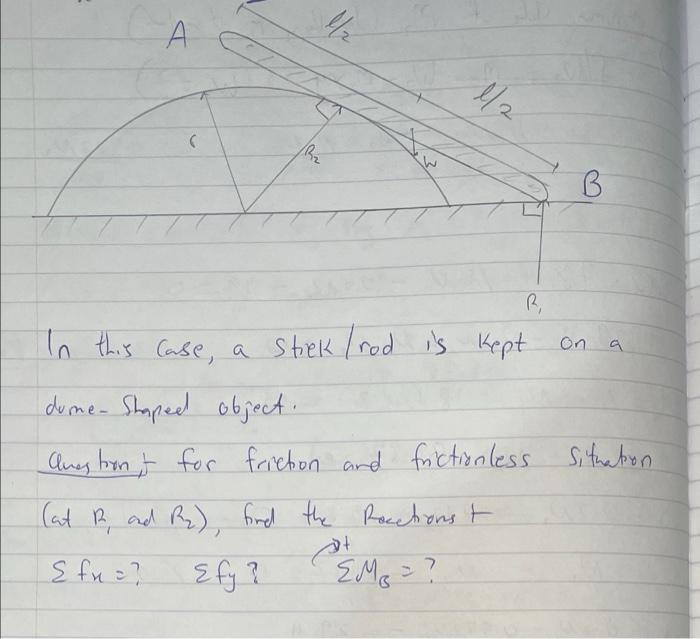 l/2
A
l/2
r
R2
W
B
R1
In this case, a stick/rod is kept on a
dome-shaped object.
Question: for friction and frictionless situation
(at R1 and R2), find the Reactions +
Σfx=? Σfy? +ΣMB=?